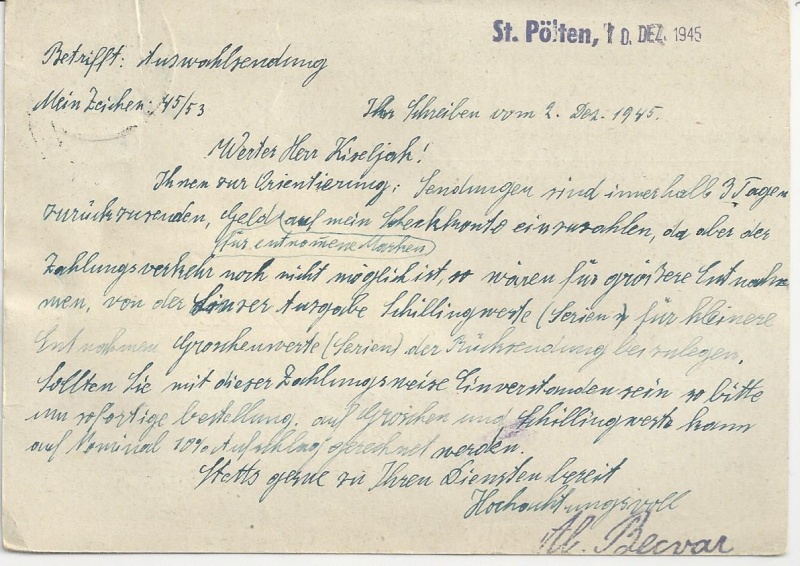 St. Pölten, 10. DEZ. 1945
Betrifft: Auswahlsendung
Mein Zeichen: 45/53
Ihr Schreiben vom 2. Dez. 1945.
Werter Herr Kiseljak!
Ihnen zur Orientierung: Sendungen sind innerhalb 3 Tagen
zurückzusenden, Geld auf mein Scheckkonto einzuzahlen, da aber der
(für entnomene Marken)
Zahlungsverkehr noch nicht möglich ist, so wären für größere Entnah-
men, von der Linzer Ausgabe Schillingwerte (Serien) für kleinere
Entnahmen Groschenwerte (Serien) der Rücksendung beizulegen.
Sollten Sie mit dieser Zahlungsweise Einverstanden sein so bitte
um sofortige bestellung, auf Groschen und Schillingwerte kann
auf Nominal 10% Aufschlag gerechnet werden.
Stetts gerne zu Ihren Diensten bereit
Hochachtungsvoll
Al. Becvar